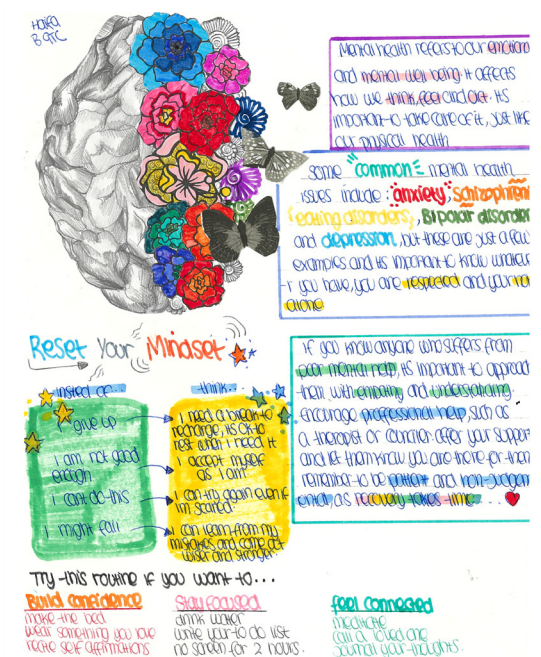 Haifa
B 9TC
Mental health refers to our emotiona
and mental well being. It affects
how we think, feel and act. Its
important to take care of it, just like
our physical health
some "common" mental health
issues include: anxiety, schizophreni
eating disorders, Bipolar disorder
and depression, but these are just a few
examples and its important to know whatever
r you have, you are respected and your no
alone
Reset Your Mindset
instead of
think...
give up
I need a break to
recharge, its ok to
rest when I need it
I am not good
enough
I accept myself
as I am
I cant do this
I can try again even if
im scared
I might fail
I can learn from my
mistakes, and come out
wiser and stronger.
If you know anyone who suffers from
poor mental help, its important to approach
them with empathy and understanding.
encourage proffessional help, such as
a therapist or councler. offer your suppor
and let them know you are there for them
remember to be patient and non-judgem
ental, as recovery takes time....
Try this routine if you want to...
Build confidence
make the bed
wear something you love
recite self affirmations
Stay focused
drink water
write your to do list
no screen for 2 hours.
feel connected
meditate
call a loved one
Journal your thoughts.